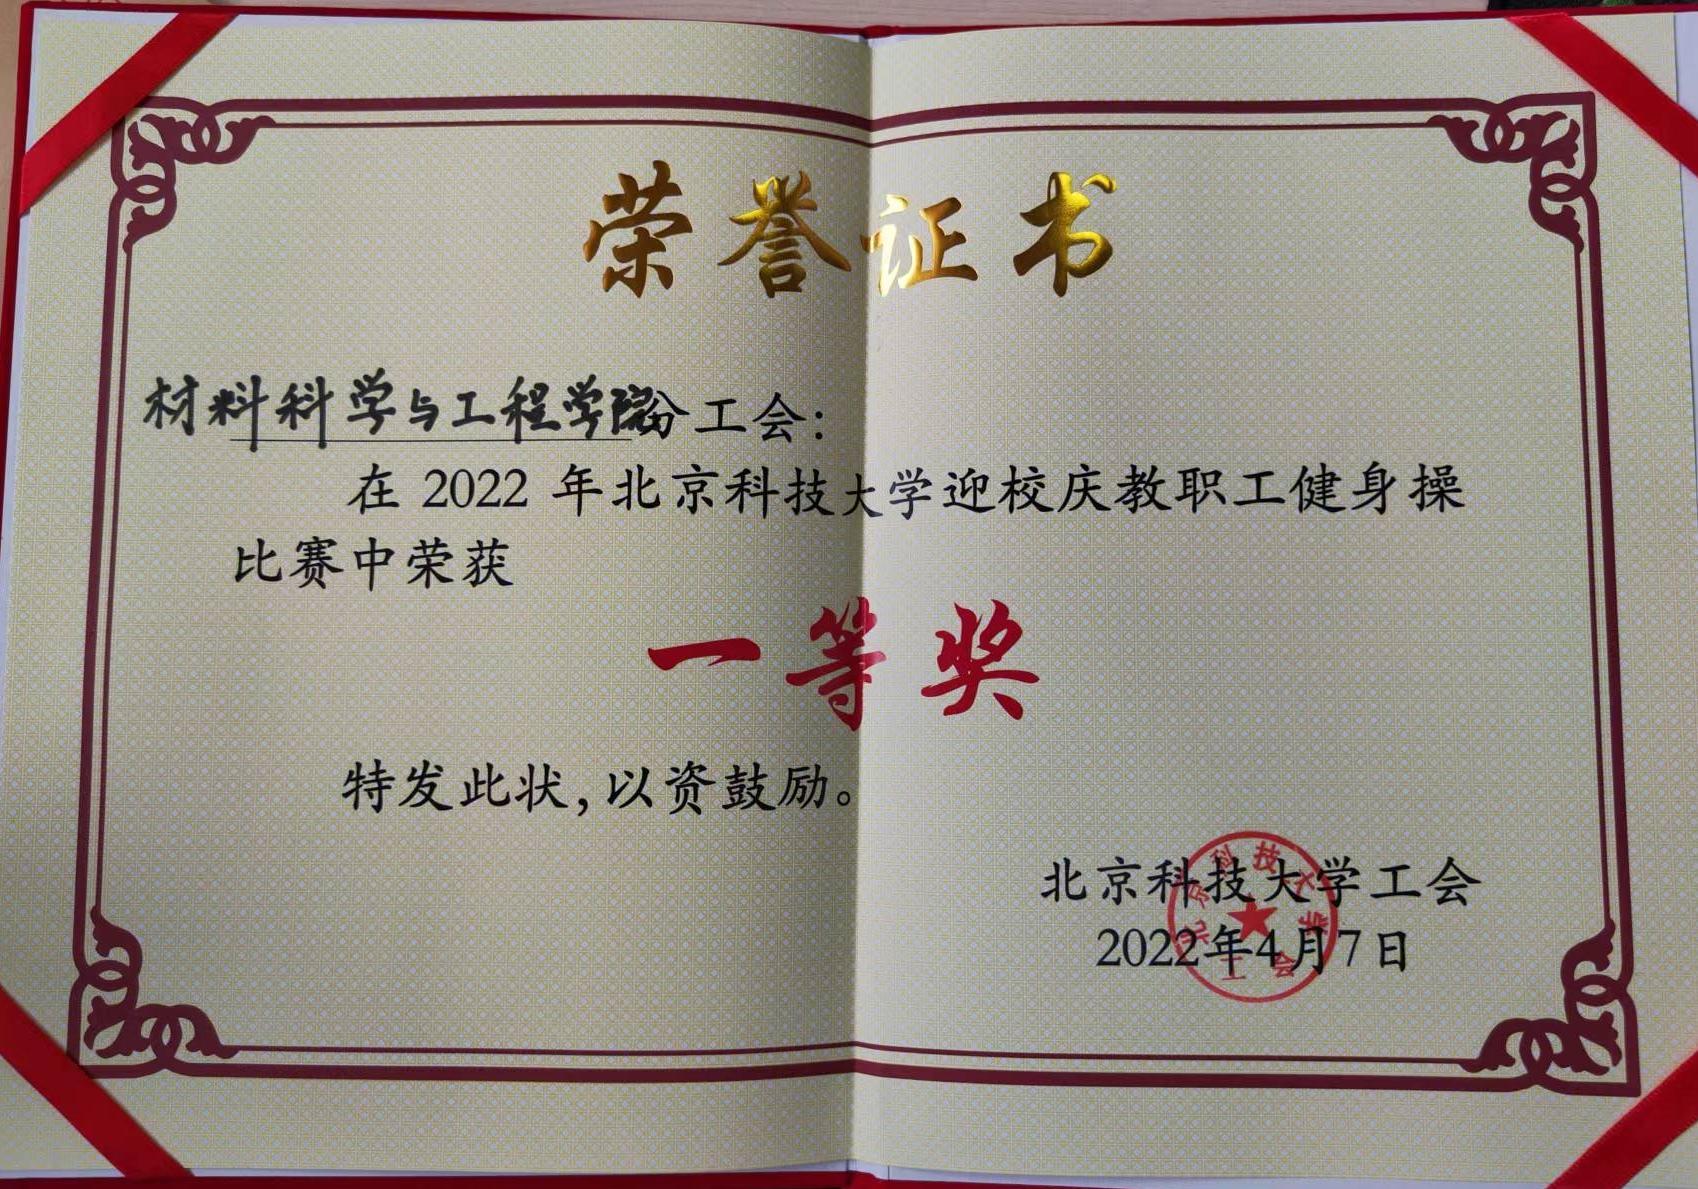 荣誉证书
材料科学与工程学院分工会：
在 2022 年北京科技大学迎校庆教职工健身操
比赛中荣获
一等奖
特发此状，以资鼓励。
北京科技大学工会
2022年4月7日
北京科技大学工会